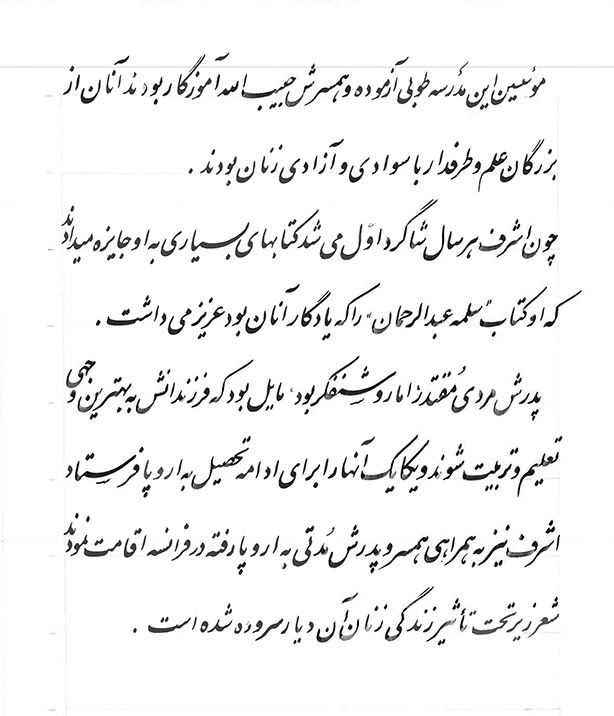 مؤسسین این مدرسه طوبی آزموده و همسرش حبیب الله آموزگار بودند آنان از
بزرگان علم و طرفدار با سوادی و آزادی زنان بودند .
چون اشرف هر سال شاگرد اوّل می شد کتابهای بسیاری به او جایزه میدادند
که او کتاب "سلمه عبدالرحمان" را که یادگار آنان بود عزیز می داشت .
پدرش مردی مُقتدر اما روشنفکر بود، مایل بود که فرزندانش به بهترین وجهی
تعلیم و تربیت شوند و یکایک آنها را برای ادامه تحصیل به اروپا فرستاد
اشرف نیز به همراهی همسر و پدرش مُدتی به اروپا رفته در فرانسه اقامت نمودند
شعر زیر تحت تأثیر زندگی زنان آن دیار سروده شده است .